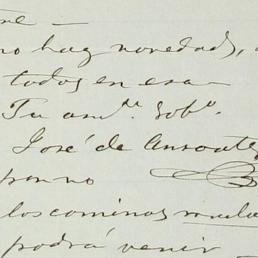 no hay novedad,
todos en esa
Tu am.ᵗᵉ Sob.ᵒ
José de
los caminos
podrá venir